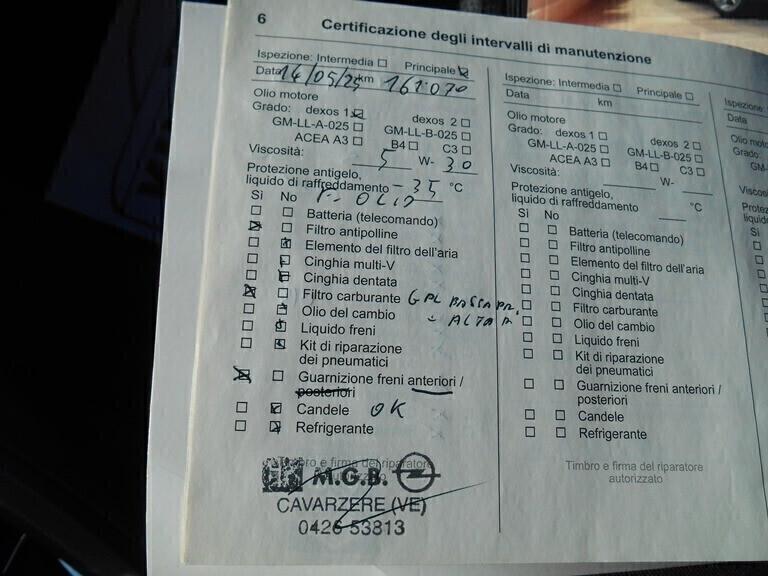 6 Certificazione degli intervalli di manutenzione
Ispezione: Intermedia Principale
Data 14/05/25 km 161070
Olio motore
Grado: dexos 1 dexos 2
GM-LL-A-025 GM-LL-B-025
ACEA A3 B4 C3
Viscosità: 5 W- 30
Protezione antigelo,
liquido di raffreddamento -35 °C
Sì No F. OLIO
Batteria (telecomando)
Filtro antipolline
Elemento del filtro dell'aria
Cinghia multi-V
Cinghia dentata
Filtro carburante GPL BASSA PR.
Olio del cambio ALTA
Liquido freni
Kit di riparazione
dei pneumatici
Guarnizione freni anteriori /
posteriori
Candele OK
Refrigerante
Timbro e firma del riparatore
autorizzato
M.G.B.
CAVARZERE (VE)
0426 53813
Ispezione: Intermedia Principale
Data km
Olio motore
Grado: dexos 1 dexos 2
GM-LL-A-025 GM-LL-B-025
ACEA A3 B4 C3
Viscosità: W-
Protezione antigelo,
liquido di raffreddamento °C
Sì No
Batteria (telecomando)
Filtro antipolline
Elemento del filtro dell'aria
Cinghia multi-V
Cinghia dentata
Filtro carburante
Olio del cambio
Liquido freni
Kit di riparazione
dei pneumatici
Guarnizione freni anteriori /
posteriori
Candele
Refrigerante
Timbro e firma del riparatore
autorizzato
Data
Grado:
Sì